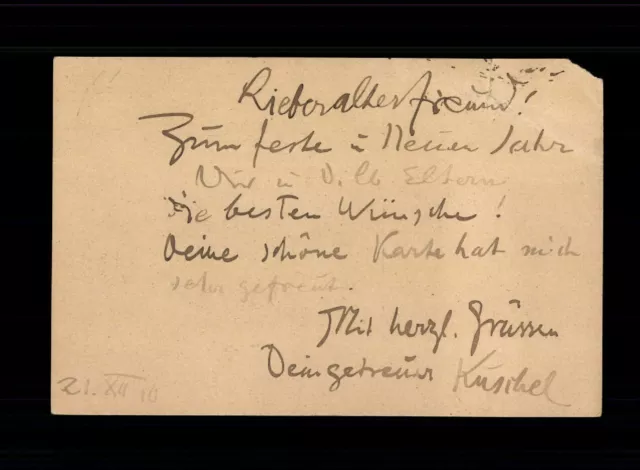 Lieber alter Freund!
Zum Feste u Neuen Jahr
Dir u D. lb Eltern
die besten Wünsche!
Deine schöne Karte hat mich
sehr gefreut.
Mit herzl. Grüssen
Dein getreuer Kuschel
21. XII 10